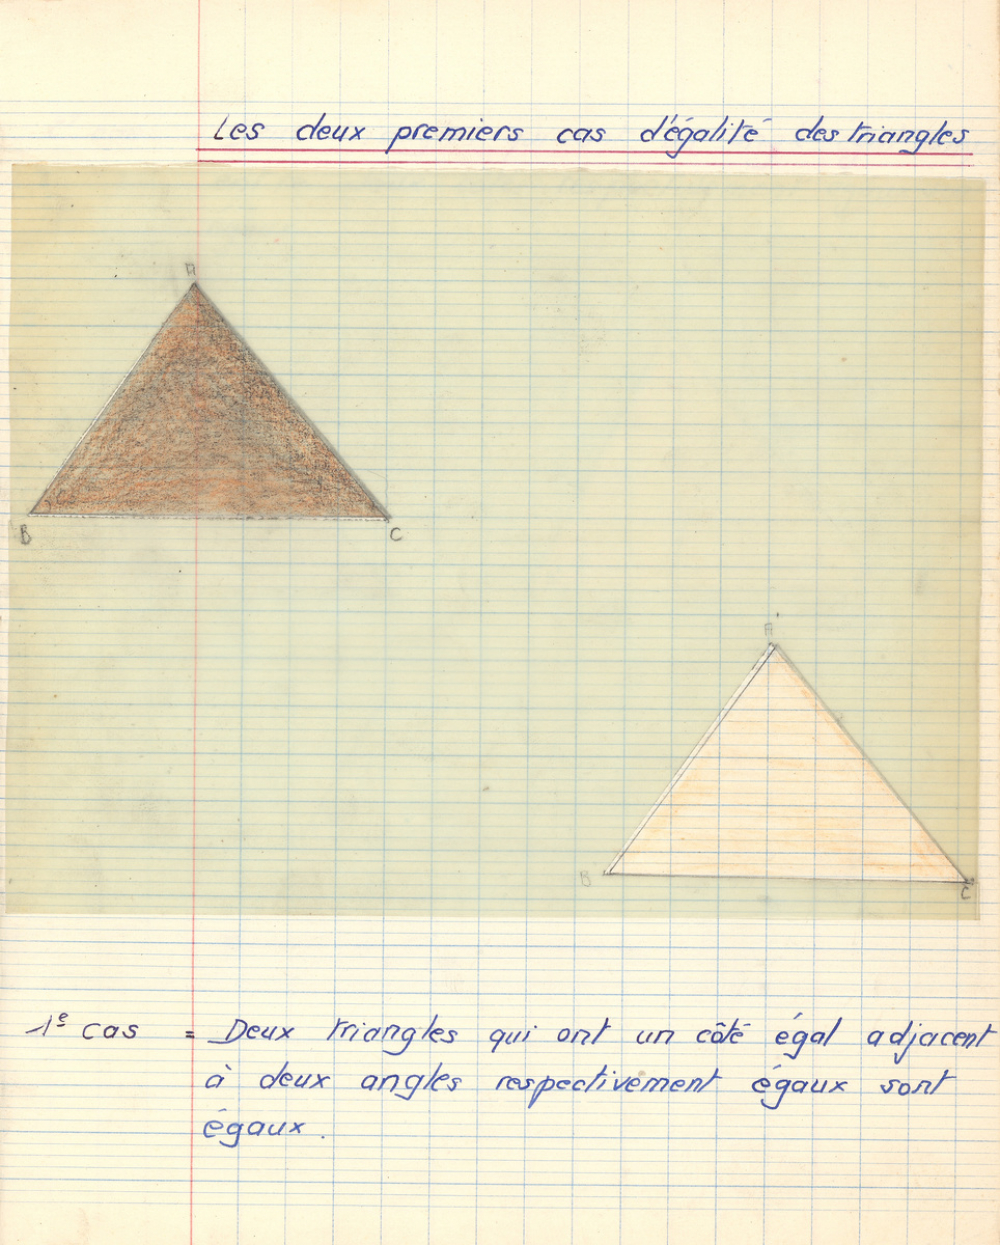 Les deux premiers cas d'égalité des triangles
A
B
C
A
B
C
1e cas = Deux triangles qui ont un côté égal adjacent
à deux angles respectivement égaux sont
égaux.